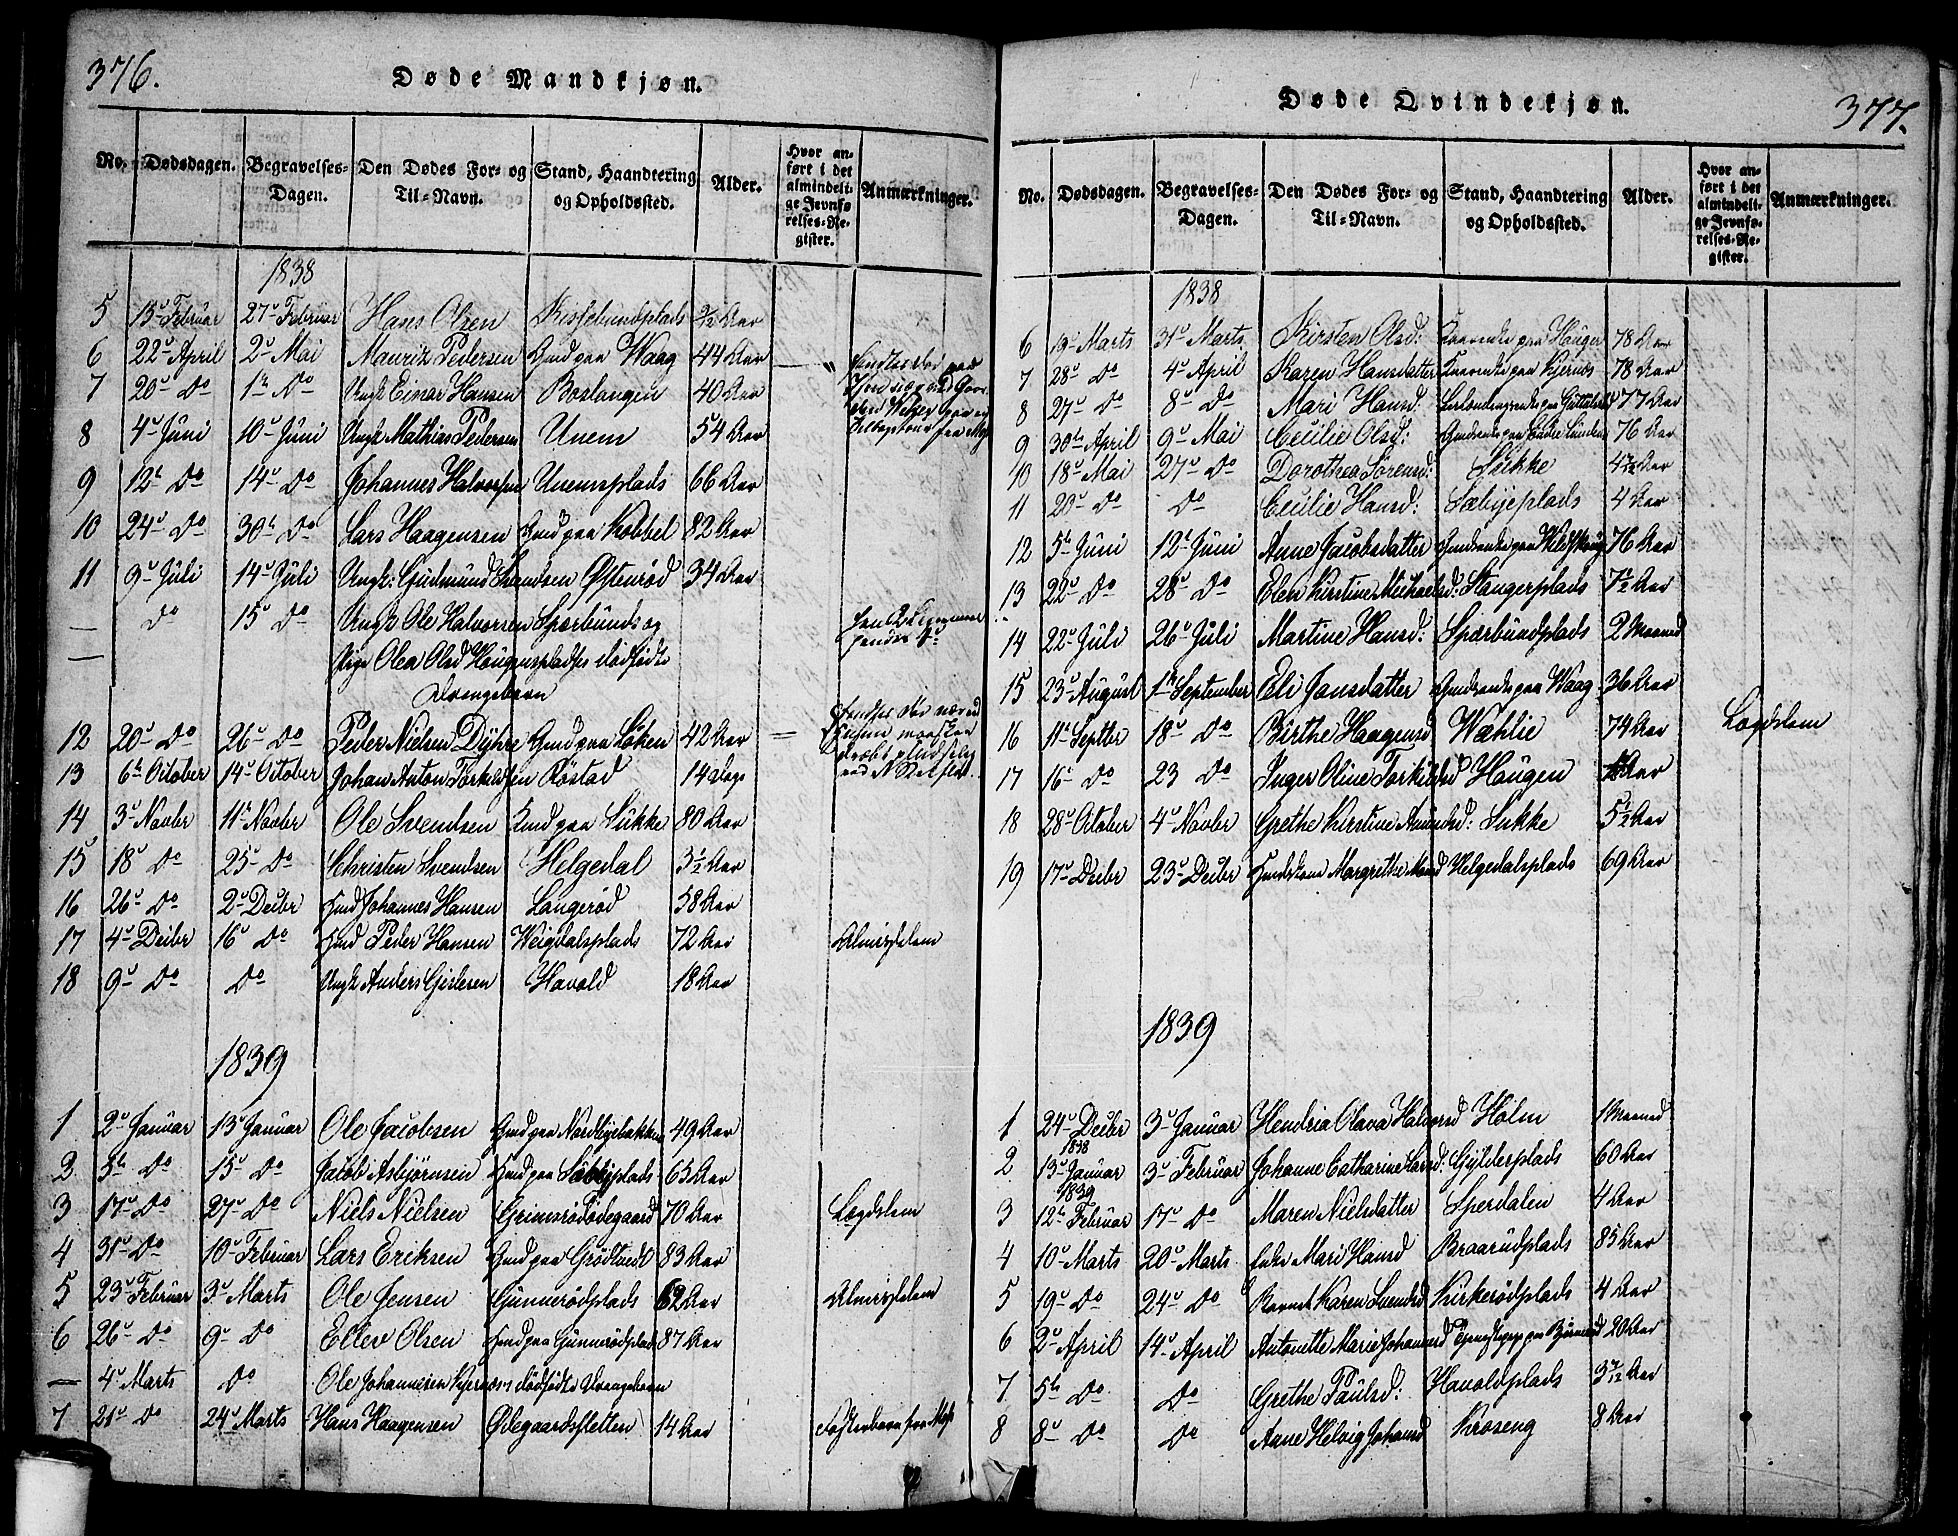 376.
Døde Mandkjøn.
No. Dødsdagen. Begravelses-Dagen. Den Dødes For- og Til-Navn. Stand, Haandtering og Opholdssted. Alder. Hvor anført i det almindelige Jevnførelses-Register. Anmærkninger.
1838
5 15de Februar 27de Februar Hans Olsen
6 22de April 2de Mai Mauritz Pedersen Gmd paa Waag 44 Aar
7 20de Do 1te Do Ungk Einar Hansen Boslangen 40 Aar
8 4de Juni 10de Juni Ungk Mathias Pedersen Unem 54 Aar
9 12te Do 14de Do Johannes Halvorsen Unemsplads 66 Aar
10 24de Do 30te Do Lars Haagensen Gmd paa Kobbel 82 Aar
11 9de Juli 14de Juli Ungk: Gudmund Svendsen Østenrød 34 Aar
— Do 15de Do Ungk Ole Halvorsen Spærbund og
— Pige Olea Olsd Haugensplads dødfødte
Drengebarn
12 20de Do 26de Do Peder Nielsen Dyhre Gmd paa Løken 42 Aar
13 6te October 14de October Johan Anton Torkelsen Røstad 14 Dage
14 3de Novbr 11te Novbr Ole Svendsen paa Sukke 80 Aar
15 18de Do 25de Do Christen Svendsen Helgedal 3½ Aar
16 26de Do 2de Decbr Johannes Hansen Langerød 58 Aar
17 4de Decbr 16de Do Peder Hansen Weigdalsplads 72 Aar Almisselem
18 9de Do Do Ungk Anders Havold 18 Aar
1839
1 2de Januar 13de Januar Ole Jacobsen Gmd paa Nordbyebakken 49 Aar
2 5te Do 15de Do Jacob Asbjørnsen Gmd paa 65 Aar
3 17de Do 27de Do Niels Nielsen Grimsrødødegaard 70 Aar Lægdslem
4 31te Do 10de Februar Lars Eriksen Gmd paa Grødtvedt 83 Aar
5 23de Februar 3de Marts Ole Jensen Gunnerødplads 62 Aar Almisselem
6 26de Do 9de Do Ellev Olsen Gmd paa Gunnerødplads 87 Aar
— 4de Marts Do Ole Johannesen dødfødte Drengebarn
7 21de Do 24de Marts Hans Haagensen Ødegaardsletten 14 Aar
377.
Døde Qvindekjøn.
No. Dødsdagen. Begravelses-Dagen. Den Dødes For- og Til-Navn. Stand, Haandtering og Opholdssted. Alder. Hvor anført i det almindelige Jevnførelses-Register. Anmærkninger.
1838
6 19de Marts 31te Marts Kirsten Olsd: paa Hauger 78 Aar
7 28de Do 4de April Karen Hansdatter paa Kjernes 78 Aar
8 27de Do 8de Do Mari Hansd: 77 Aar
9 30te April 9de Mai Cecilie Olsd: 76 Aar
10 18de Mai 27de Do Dorothea Sørensd: Sukke
11 20de Do Do Cecilie Hansd: Sæbyeplads 4 Aar
12 5te Juni 12te Juni Anne Jacobsdatter 76 Aar
13 22de Do 28de Do Elen Kirstine Michaelsd: Stangerplads 7½ Aar
14 22de Juli 26de Juli Martine Hansd: Spærbundplads 2 Maaned
15 23de August 1te September Eli Jonsdatter paa Waag 36 Aar
16 11te Septbr 18de Do Birthe Haagensd Wæhlie 74 Aar Lægdslem
17 16de Do 23 Do Inger Oline Torkildsd Haugen
18 28de October 4de Novbr Grethe Kirstine Amundsd: Sukke 5½ Aar
19 17de Decbr 23de Decbr Margrethe Helgedalsplads 69 Aar
1839
1 24de Decbr 1838 3de Januar Hendria Olava Halvorsd Holm 1 Maaned
2 13de Januar 1839 3de Februar Johanne Catharine Larsd: Gylderplads 60 Aar
3 12te Februar 17de Do Maren Nielsdatter Sperdalen 4 Aar
4 10de Marts 20de Marts Enke Mari Hansd Braarudplads 85 Aar
5 19de Do 24de Do Barnet Karen Svendsd Kirkerødplads 4 Aar
6 2de April 14de April Antonette Marie Johannesd 20 Aar
7 5te Do Do Grethe Paulsd: Havoldplads
8 8de Do Do Anne Helvig Johansd Krøseng 8 Aar